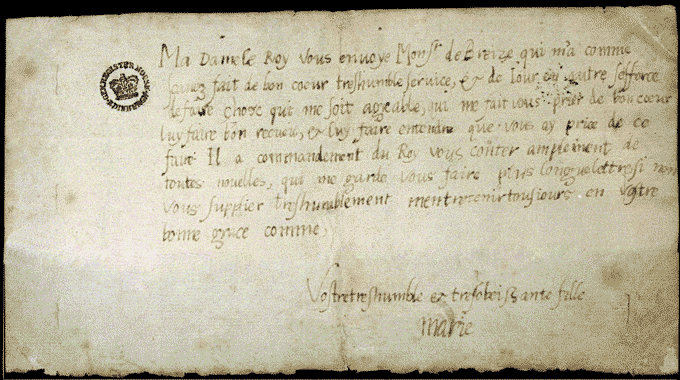 Ma Dame le Roy vous envoye Monsr de Breize qui m'a comme
scavez fait de bon coeur treshumble service, et de Jour en autre sefforce
de faire chose qui me soit agreable, qui me fait vous prier de bon coeur
luy faire bon recueil, et luy faire entendre que vous ay priee de ce
faire Il a commandement du Roy vous conter amplement de
toutes nouvelles, qui me garde vous faire plus longue lettre si non
vous supplier treshumblement m'entretenir tousiours en vostre
bonne grace comme,
Vostre treshumble et tresobeissante fille
Marie